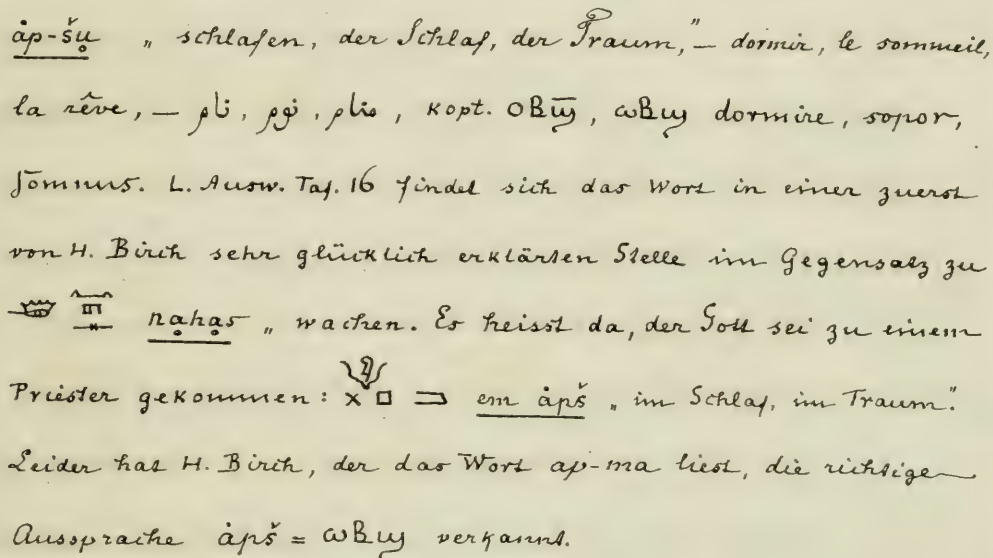 ȧp-šụ „ schlafen, der Schlaf, der Traum,” — dormir, le sommeil,
la rêve, — نام , نوم , منام , kopt. ⲟⲃϣ̄, ⲱⲃϣ dormire, sopor,
somnus. L. Ausw. Taf. 16 findet sich das Wort in einer zuerst
von H. Birch sehr glücklich erklärten Stelle im Gegensatz zu
nạhạs „ wachen. Es heisst da, der Gott sei zu einem
Priester gekommen: em ȧpš „ im Schlaf, im Traum”.
Leider hat H. Birch, der das Wort ap-ma liest, die richtige
Aussprache ȧpš = ⲱⲃϣ verkannt.